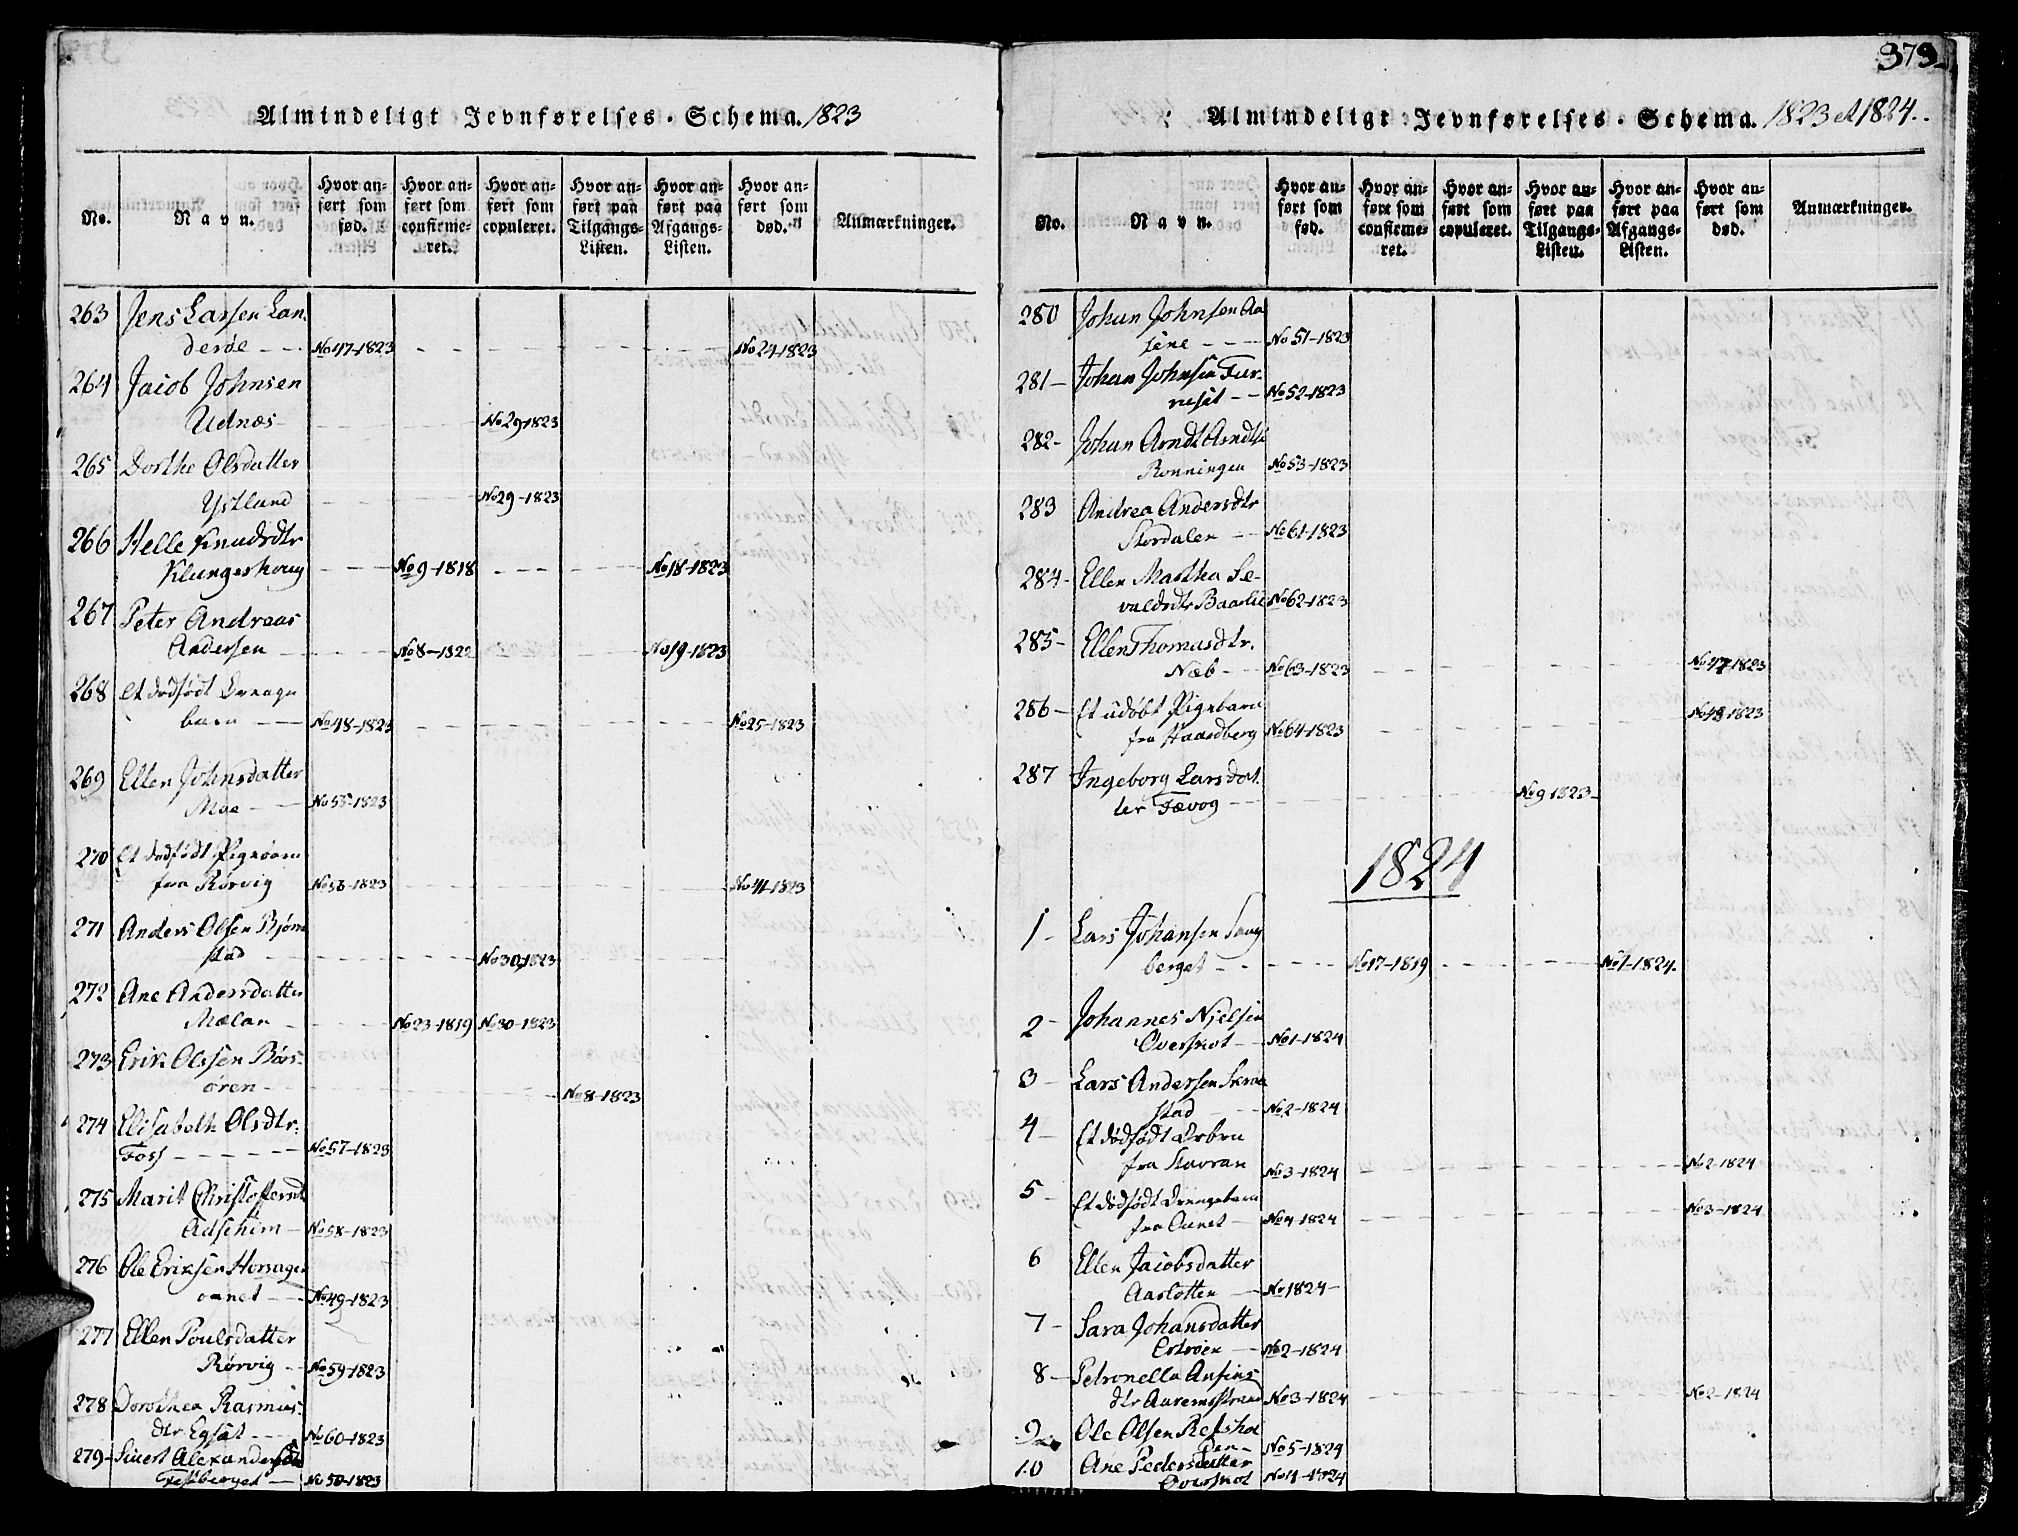 Almindeligt Jevnførelses-Schema. 1823
No.
Navn.
Hvor anført som fød.
Hvor anført som confirmeret.
Hvor anført som copuleret.
Hvor anført paa Tilgangs-Listen.
Hvor anført paa Afgangs-Listen.
Hvor anført som død.
Anmærkninger.
263 Jens Larsen Lan-
derøe No 47-1823 No 24-1823
264 Jacob Johnsen
Udnæs No 29-1823
265 Dorthe Olsdatter
Ystland No 29-1823
266 Helle Knudsdtr
Klungeshoug No 9-1818 No 18-1823
267 Peter Andreas
Andersen No 8-1822 No 19-1823
268 Et dødfødt Drenge
barn No 48-1823 No 25-1823
269 Ellen Johnsdatter
Moe No 55-1823
270 Et dødfødt Pigebarn
fra Rørvig No 56-1823 No 41-1823
271 Anders Olsen Bjørn
stad No 30-1823
272 Ane Andersdatter
Mælan No 23-1819 No 30-1823
273 Erik Olssen Børs-
øren No 8-1823
274 Elisabeth Olsdtr.
Foss No 57-1823
275 Marit Christoffersdt
Adseheim No 58-1823
276 Ole Eriksen Horsagen
oanet No 49-1823
277 Ellen Poulsdatter
Rørvig No 59-1823
278 Dorothea Rasmus-
dtr Egsæt No 60-1823
279 Siuert Alexandersen
Festberget No 50-1823
373
Almindeligt Jevnførelses-Schema. 1823 et 1824.
No.
Navn.
Hvor anført som fød.
Hvor anført som confirmeret.
Hvor anført som copuleret.
Hvor anført paa Tilgangs-Listen.
Hvor anført paa Afgangs-Listen.
Hvor anført som død.
Anmærkninger.
280 Johan Johnsen Aa
sene No 51-1823
281 Johan Johnsen Fur-
nesæt No 52-1823
282 Johan Arndt Arndts
Rønningen No 53-1823
283 Andrea Andersdtr
Stordalen No 61-1823
284 Ellen Martha Se-
valdsdtr Baarlie No 62-1823
285 Ellen Thomasdtr.
Næb No 63-1823 No 47-1823
286 Et udøbt Pigebarn
fra Haardberg No 64-1823 No 48-1823
287 Ingeborg Larsdat
ter Tævog No 9 1823
1824
1 Lars Johansen Saug
berget No 17-1819 No 1-1824
2 Johannes Nielsen
Overskot No 1-1824
3 Lars Andersen Skraa
stad No 2-1824
4 Et dødfødt Drbrn
fra Stavran No 3-1824 No 2-1824
5 Et dødfødt Drengebarn
fra Aunet No 4-1824 No 3-1824
6 Ellen Jacobsdatter
Aaslotten No 1824
7 Sara Johansdatter
No 2-1824
8 Petronella Anfins
dtr Auremsstrand No 3-1824 No 2-1824
9 Ole Olsen Refshol
den No 5-1824
10 Ane Pedersdatter
Overskot No 4-1824